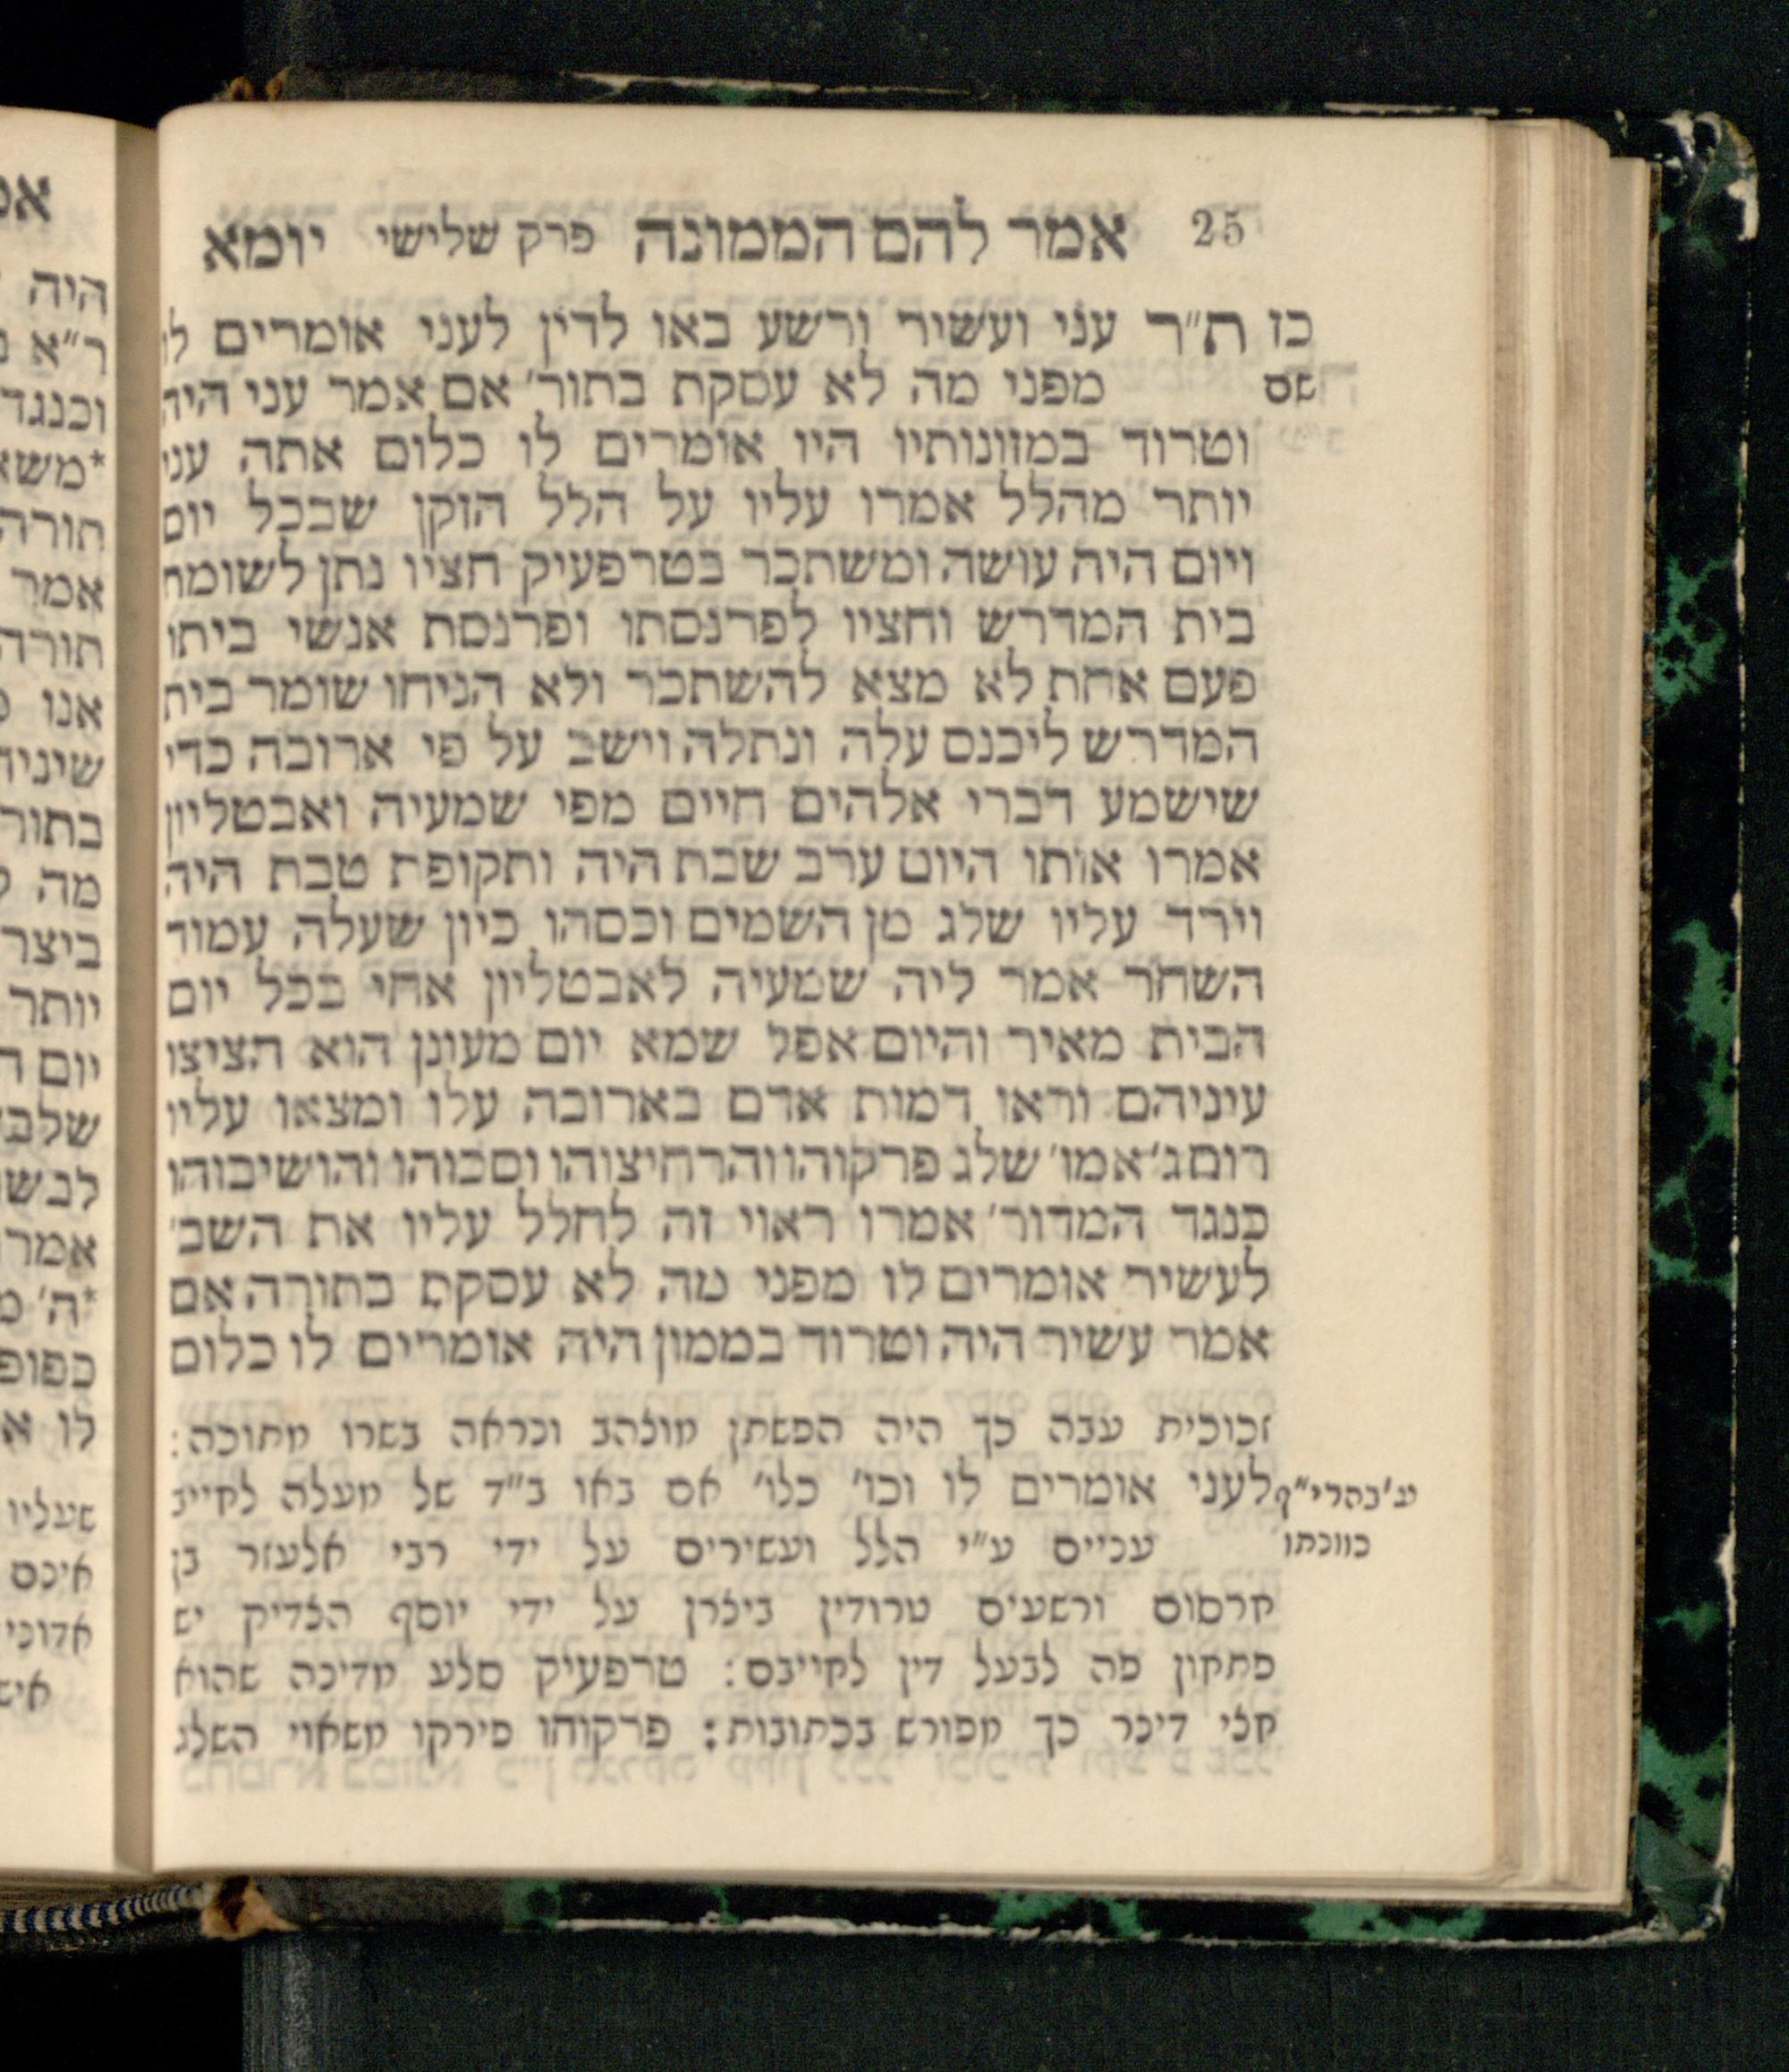 25 אמר להם הממונה פרק שלישי יומא
כז ת״ר עני ועשיר ורשע באו לדין לעני אומרים לו
שם מפני מה לא עסקת בתור׳ אם אמר עני היה
וטרוד במזונותיו היו אומרים לו כלום אתה עני
יותר מהלל אמרו עליו על הלל הזקן שבכל יום
ויום היה עושה ומשתכר בטרפעיק חציו נתן לשומר
בית המדרש וחציו לפרנסתו ופרנסת אנשי ביתו
פעם אחת לא מצא להשתכר ולא הניחו שומר בית
המדרש ליכנס עלה ונתלה וישב על פי ארובה כדי
שישמע דברי אלהים חיים מפי שמעיה ואבטליון
אמרו אותו היום ערב שבת היה ותקופת טבת היה
וירד עליו שלג מן השמים וכסהו כיון שעלה עמוד
השחר אמר ליה שמעיה לאבטליון אחי בכל יום
הבית מאיר והיום אפל שמא יום מעונן הוא הציצו
עיניהם וראו דמות אדם בארובה עלו ומצאו עליו
רום ג׳ אמו׳ שלג פרקוהו והרחיצוהו וסכוהו והושיבוהו
כנגד המדור׳ אמרו ראוי זה לחלל עליו את השב׳
לעשיר אומרים לו מפני מה לא עסקת בתורה אם
אמר עשיר היה וטרוד בממון היה אומרים לו כלום
זכוכית עבה כך היה הפשתן מוצהב ונראה בשרו מתוכה:
לעני אומרים לו וכו׳ כלו׳ אם באו ב״ד של מעלה לחייב
עניים ע״י הלל ועשירים על ידי רבי אלעזר בן
חרסום ורשעים טרודין ביצרן על ידי יוסף הצדיק יש
פתחון פה לבעל דין לחייבם: טרפעיק סלע מדינה שהוא
חצי דינר כך מפורש בכתובות: פרקוהו פירקו משאוי השלג
כוונתו